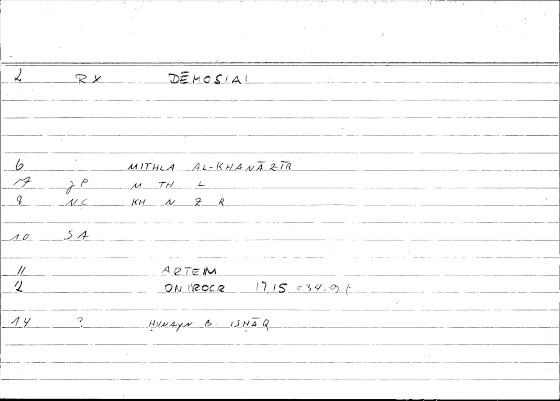 2 RX DĒMOSIAI
6 MITHLA AL-KHANĀZĪR
17 JP M TH L
8 NC KH N Z R
10 SA
11 ARTEM
2 ONIROCR 17,15 = 34.9 f
14 ? ḤUNAYN B. ISḤĀQ